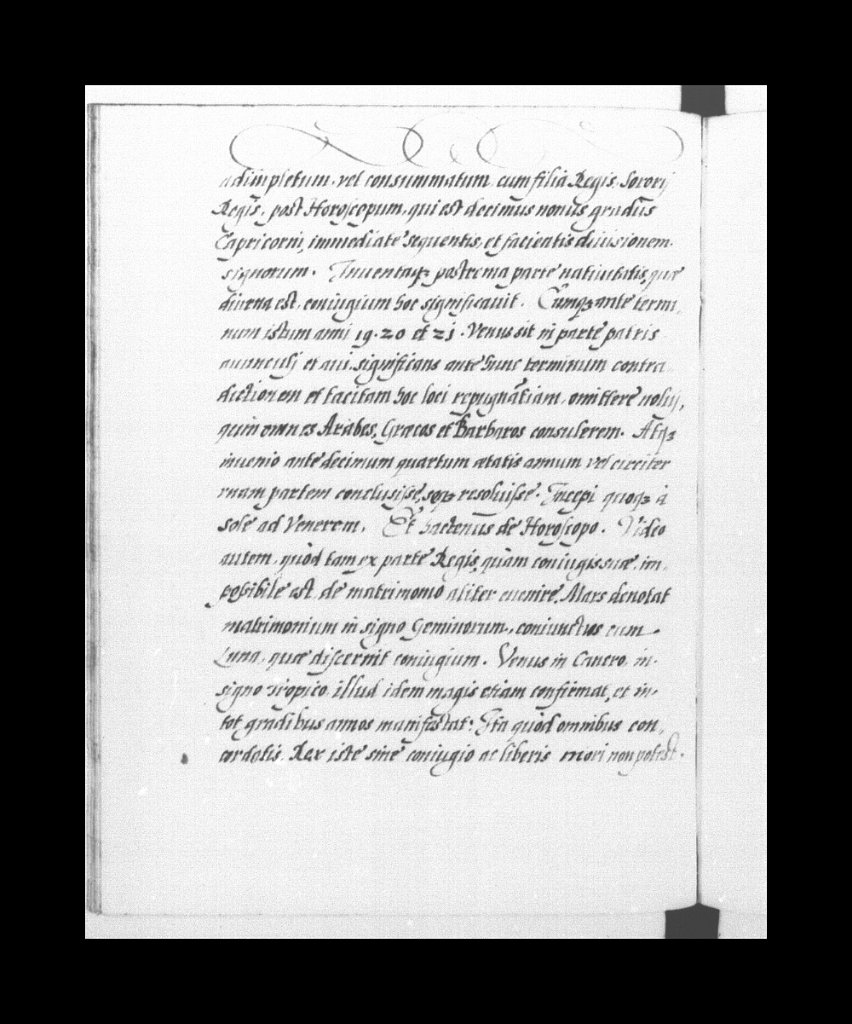 adimpletum, vel consummatum cum filia Regis, Sororij
Regis, post Horoscopum, qui est decimus nonus gradus
Capricorni, immediate sequentis, et facientis divisionem
signorum. Inventaq; postrema parte nativitatis, quæ
diurna est, coniugium hoc significavit. Cumq; ante termi,
num istum anni 19. 20 et 21. Venus sit in parte patris
avunculj et avi, significans ante hunc terminum contra
dictionem et tacitam hoc loci repugnātiam, omittere nolui,
quin omnes Arabes, Græcos et Barbaros consulerem. Atq;
invenio ante decimum quartum ætatis annum vel circiter
partem conclusisse, resolvisse. Incepi quoq; à
sole ad Venerem. Et hactenus de Horoscopo. Video
autem, quòd tam ex parte Regis, quàm coniugis suæ, im,
possibile est, de matrimonio aliter evenire. Mars denotat
matrimonium in signo Geminorum, coniunctus cum
Luna, quæ discernit coniugium. Venus in Cancro, in
signo Tropico, illud idem magis etiam confirmat, et in
tot gradibus annos manifestat: Ita quòd omnibus con,
cordatis, Rex iste sine coniugio ac liberis mori non potest.